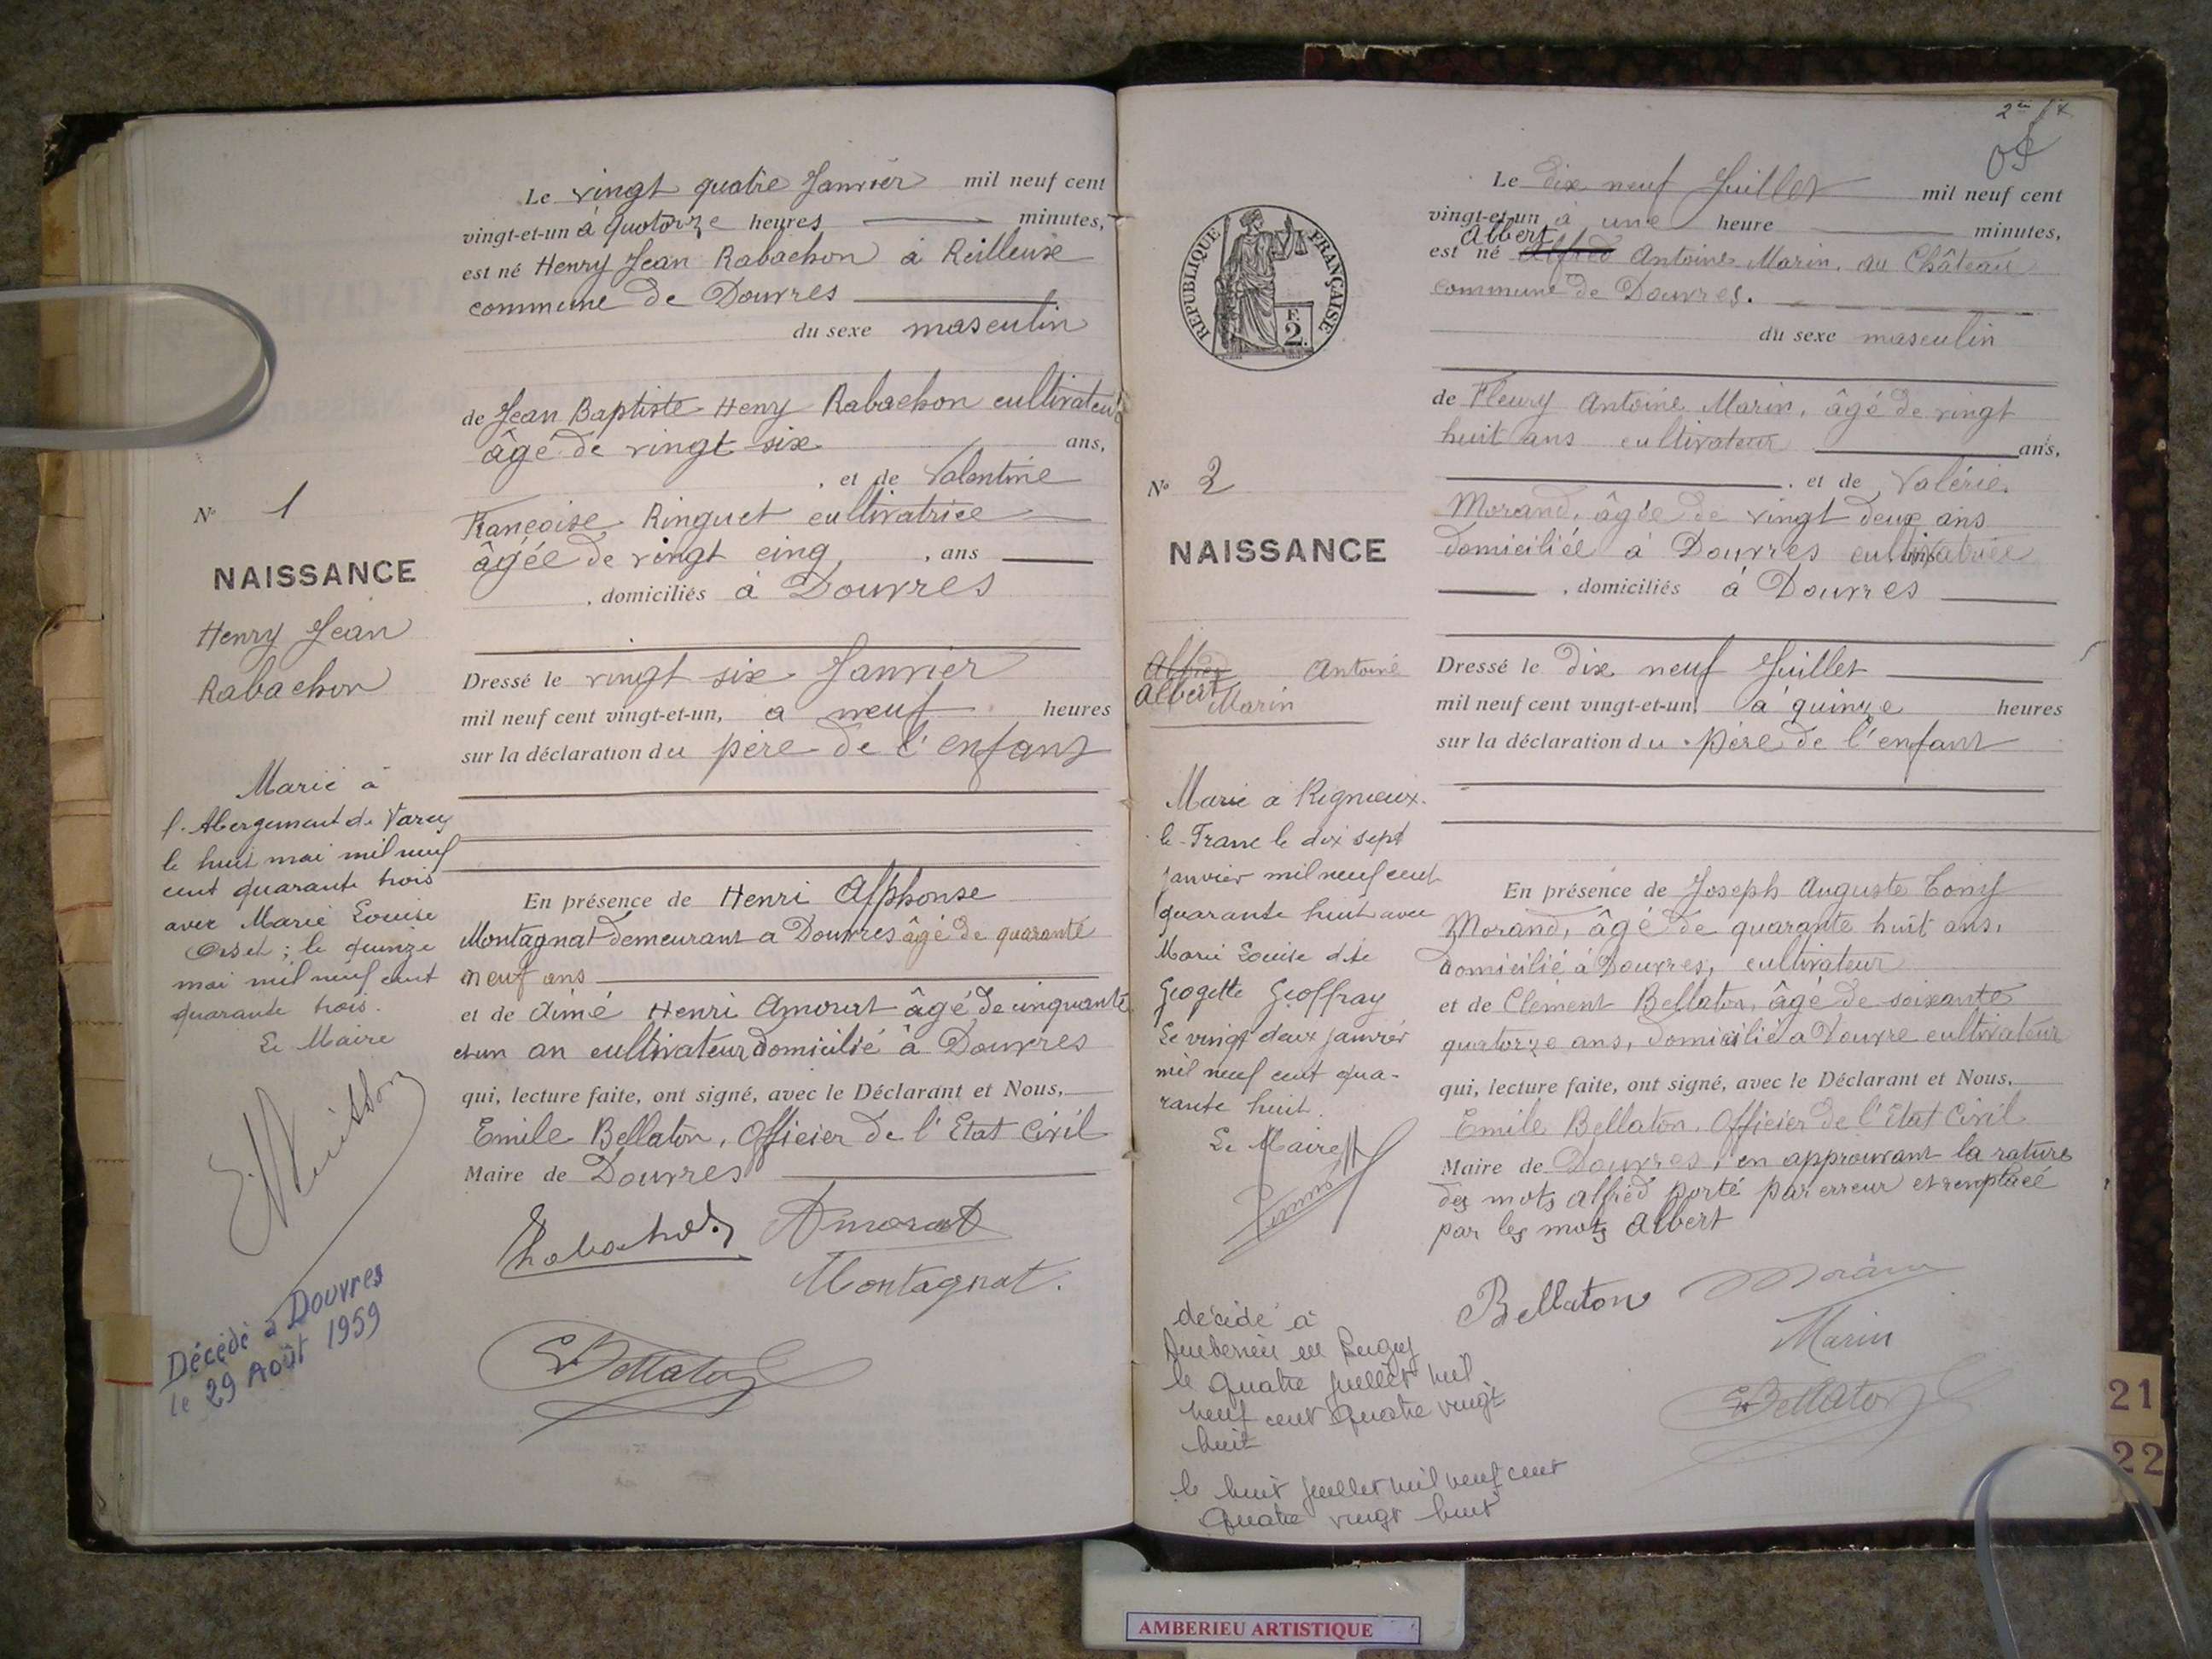 Le vingt quatre Janvier mil neuf cent
vingt-et-un à quotorze heures minutes,
est né Henry Jean Rabachon à Reilleuse
commune de Douvres
du sexe masculin
de Jean Baptiste Henry Rabachon cultivateur
âgé de vingt six ans,
, et de Valentine
Françoise Ringuet cultivatrice
âgée de vingt cinq , ans
, domiciliés à Douvres
Dressé le vingt six Janvier
mil neuf cent vingt-et-un, a neuf heures
sur la déclaration du père de l'enfant
En présence de Henri Alphonse
Montagnat demeurant a Douvres âgé de quarante
neuf ans
et de Aimé Henri Amourat âgé de cinquante
et un an cultivateur domicilié à Douvres
qui, lecture faite, ont signé, avec le Déclarant et Nous,
Emile Bellaton, Officier de l'Etat Civil
Maire de Douvres
Rabachon Amorat
Montagnat.
E Bellaton
N° 1
NAISSANCE
Henry Jean
Rabachon
Marié à
l'Abergement de Varey
le huit mai mil neuf
cent quarante trois
avec Marie Louise
Orset ; le quinze
mai mil neuf cent
quarante trois.
Le Maire
Décédé à Douvres
le 29 Août 1959
Le dix neuf Juillet mil neuf cent
vingt-et-un à une heure minutes,
Albert
est né Alfred Antoine Marin, au Château
commune de Douvres.
du sexe masculin
de Fleury Antoine Marin, âgé de vingt
huit ans cultivateur ans,
, et de Valérie
Morand, âgée de vingt deux ans
domiciliée à Douvres cultivatrice
, domiciliés à Douvres
Dressé le dix neuf Juillet
mil neuf cent vingt-et-un, à quinze heures
sur la déclaration du père de l'enfant
En présence de Joseph Auguste Tony
Morand, âgé de quarante huit ans,
domicilié à Douvres, cultivateur
et de Clément Bellaton, âgé de soixante
quatorze ans, domicilié a Douvre cultivateur
qui, lecture faite, ont signé, avec le Déclarant et Nous,
Emile Bellaton, Officier de l'Etat Civil
Maire de Douvres, en approuvant la rature
des mots Alfred porté par erreur et remplacé
par les mots Albert
Bellaton Morand
Marin
E Bellaton
RÉPUBLIQUE FRANÇAISE
F. 2.
N° 2
NAISSANCE
Alfred Antoine
Albert Marin
Marié à Rignieux-
le-Franc le dix sept
janvier mil neuf cent
quarante huit avec
Marie Louise dite
Geogette Geoffray
Le vingt deux janvier
mil neuf cent qua-
rante huit.
Le Maire
décédé à
Ambérieu en Bugey
le quatre juillet mil
neuf cent quatre vingt
huit
le huit juillet mil neuf cent
quatre vingt huit
21
22
AMBERIEU ARTISTIQUE